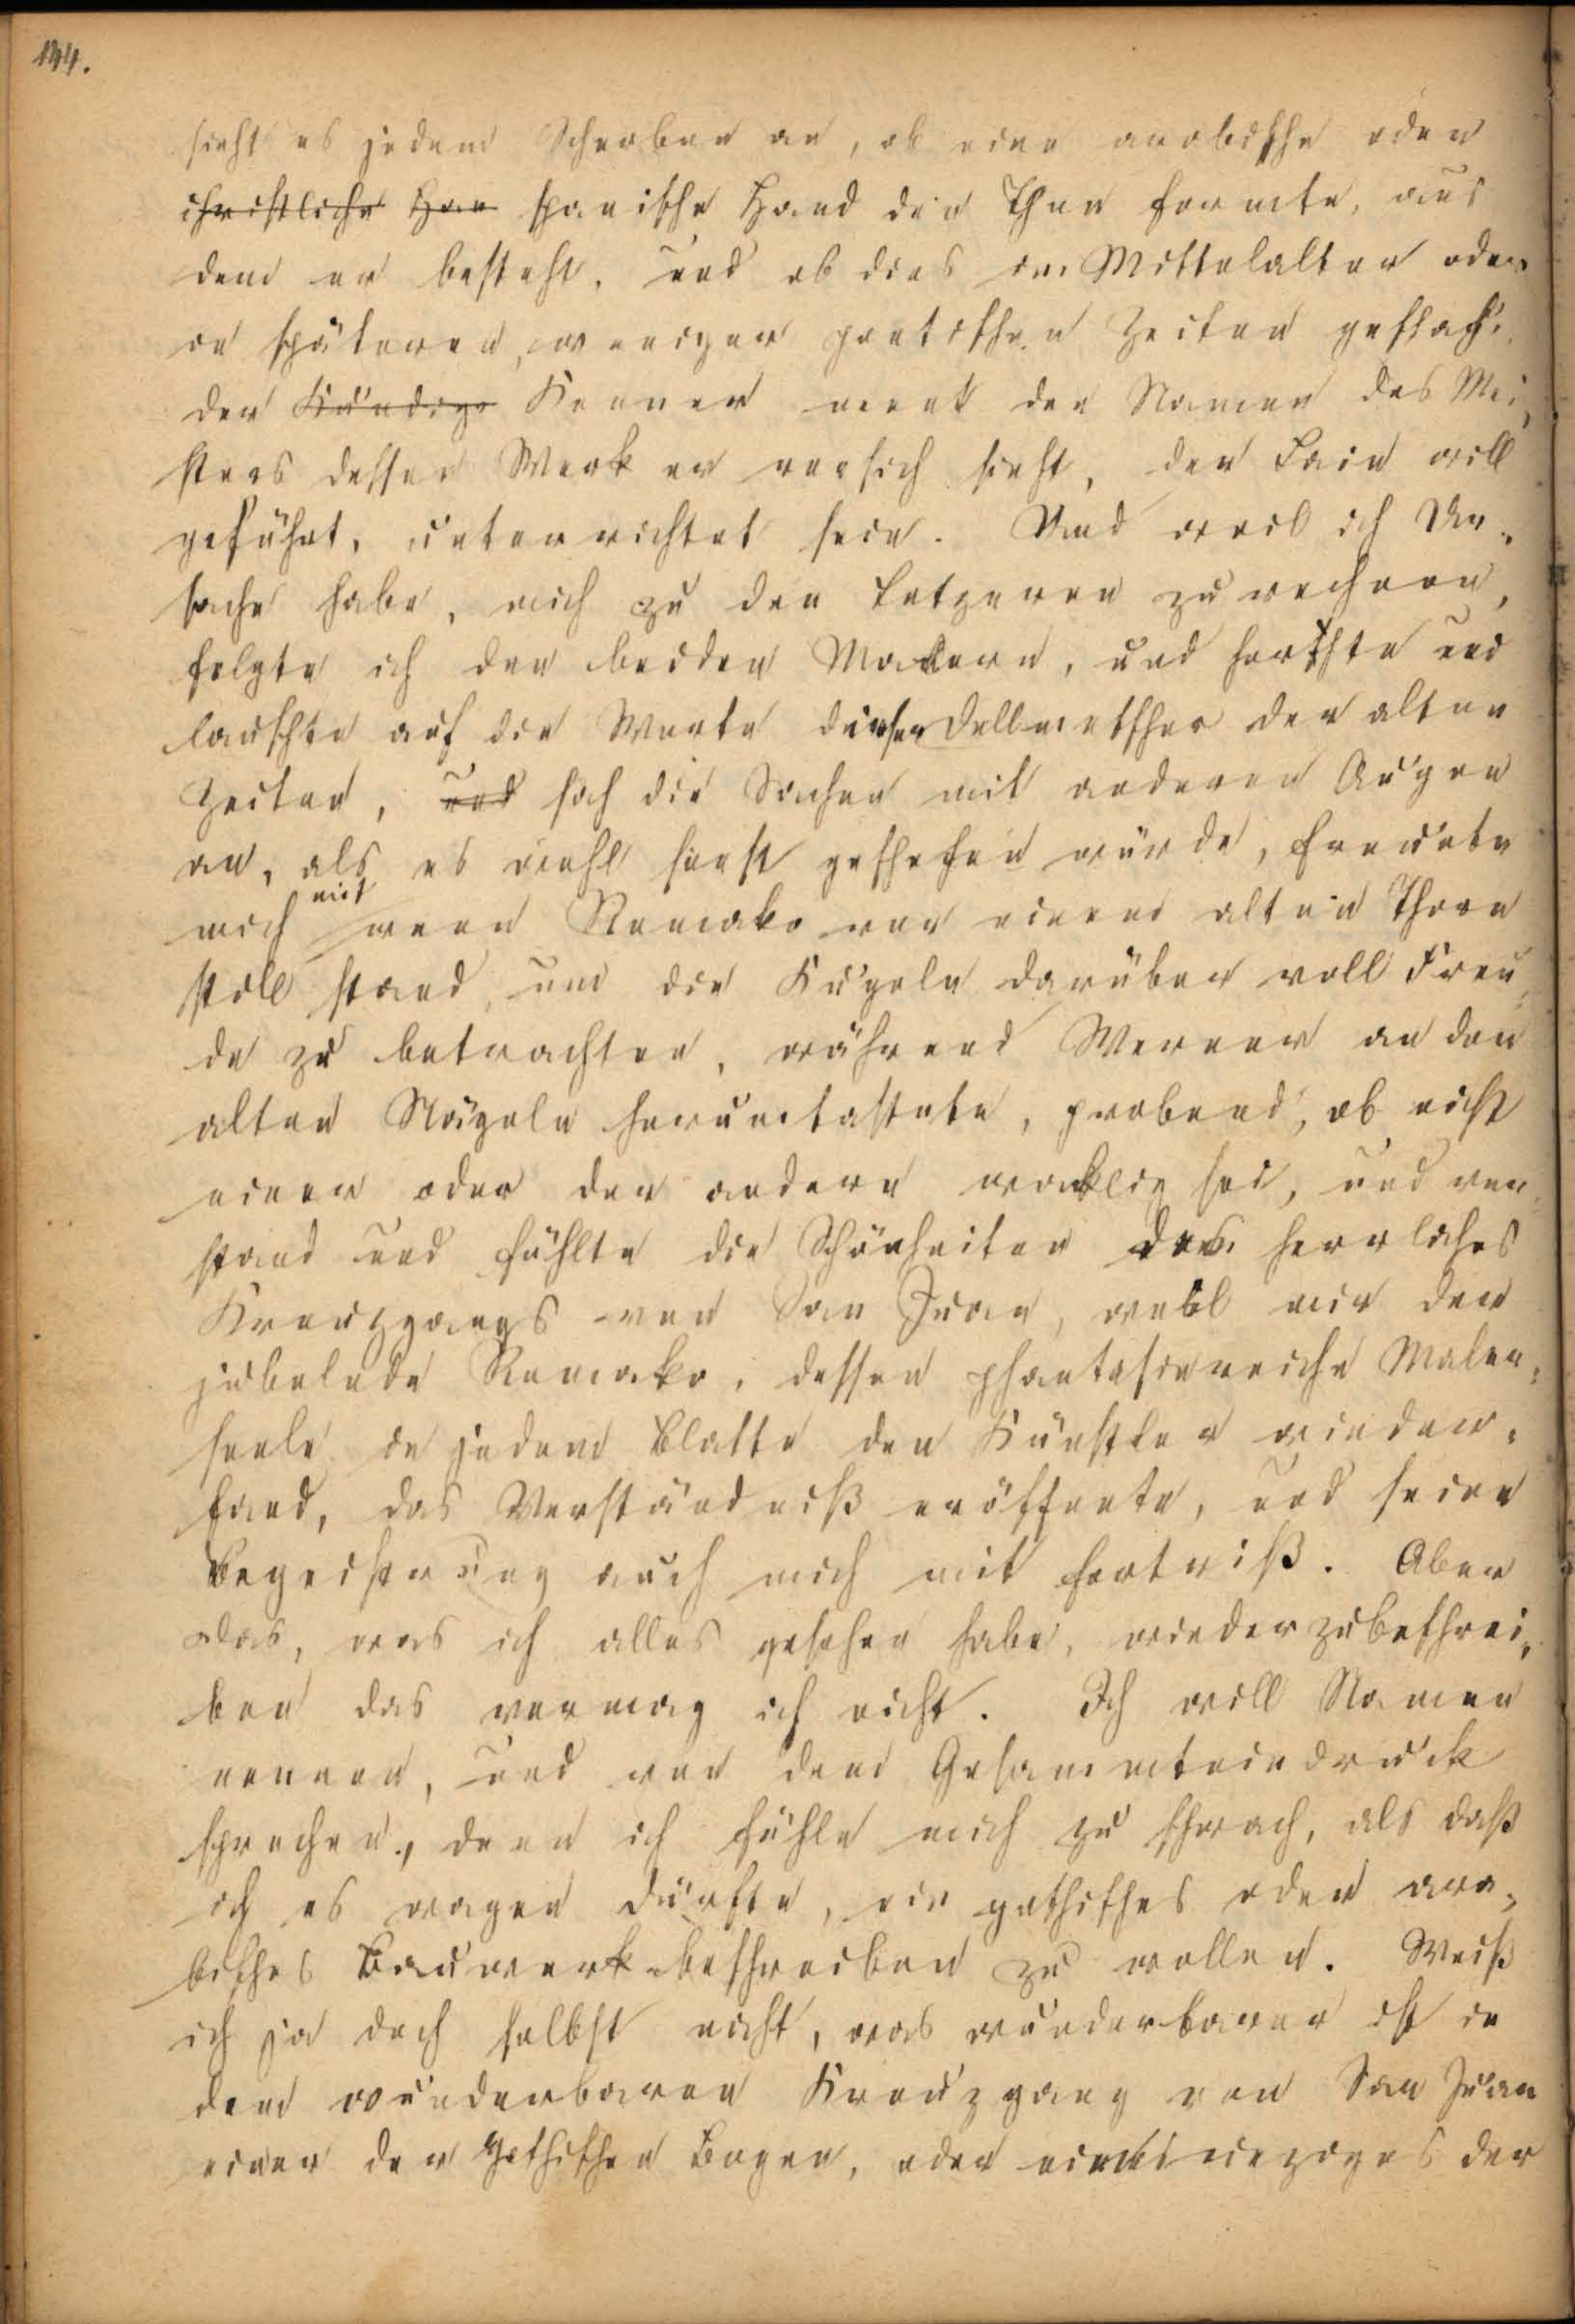 144.
sieht es jedem Scherben an, ob eine arabische oder
christliche Han spanische Hand den Thon formte, aus
dem er besteht, und ob dies im Mittelalter oder
in späteren, weniger poetischen Zeiten geschach.
der Kundige Kenner nennt den Namen des Mei,
sters dessen Werk er vor sich sieht, der Laie will
geführt, unterrichtet sein. Und weil ich Ur,
sache habe, mich zu den Letzeren zu rechnen,
folgte ich den beiden Malern, und horchte und
lauschte auf die Worte dieser Dollmetscher der alten
Zeiten, und sah die Sachen mit anderen Augen
an, als es wohl sonst geschehen würde, freute
mich mit wenn Romako vor einem alten Thore
still stand, um die Kugeln darüber voll Freu,
de zu betrachten, während Werner an den
alten Nägeln herumtastete, probend, ob nicht
einer oder der andere wacklig sei, und ver,
stand und fühlte die Schönheiten des herrlichs
Kreuzgangs von San Juan, weil mir der
jubelnde Romako, dessen phantasiereiche Maler,
seele in jedem Blatte den Künstler wieder,
fand, das Verständniß eröffnete, und seine
Begeisterung auch mich mit fortriß. Aber
das, was ich alles gesehen habe, wiederzubeschrei,
ben das vermag ich nicht. Ich will Namen
nennen, und von dem Gesammteindruck
sprechen, denn ich fühle mich zu schwach, als daß
ich es wagen dürfte, ein gothisches oder ara,
bisches Bauwerk beschreiben zu wollen. Weiß
ich ja doch selbst nicht, was wunderbarer ist in
dem wunderbaren Kreuzgang von San Juan
einer der gothischen Bogen, oder ein einziges der